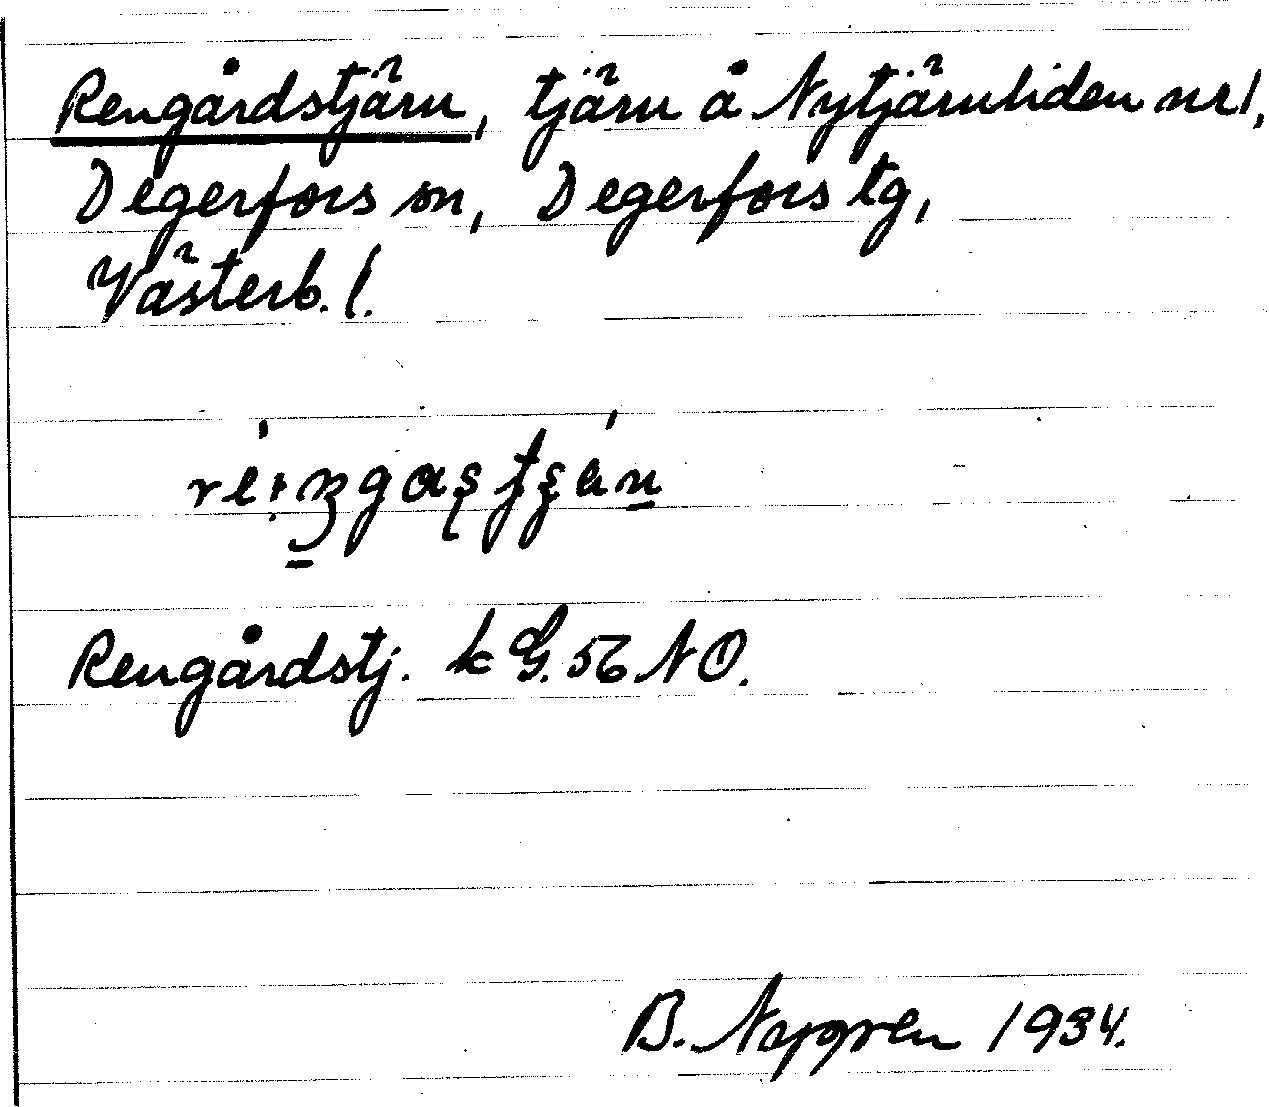 Rengårdstjärn, tjärn å Nytjärnliden nr 1,
Degerfors sn, Degerfors tg,
Västerb. l.
Rengårdstj. k G. 56 NO.
B. 1934.